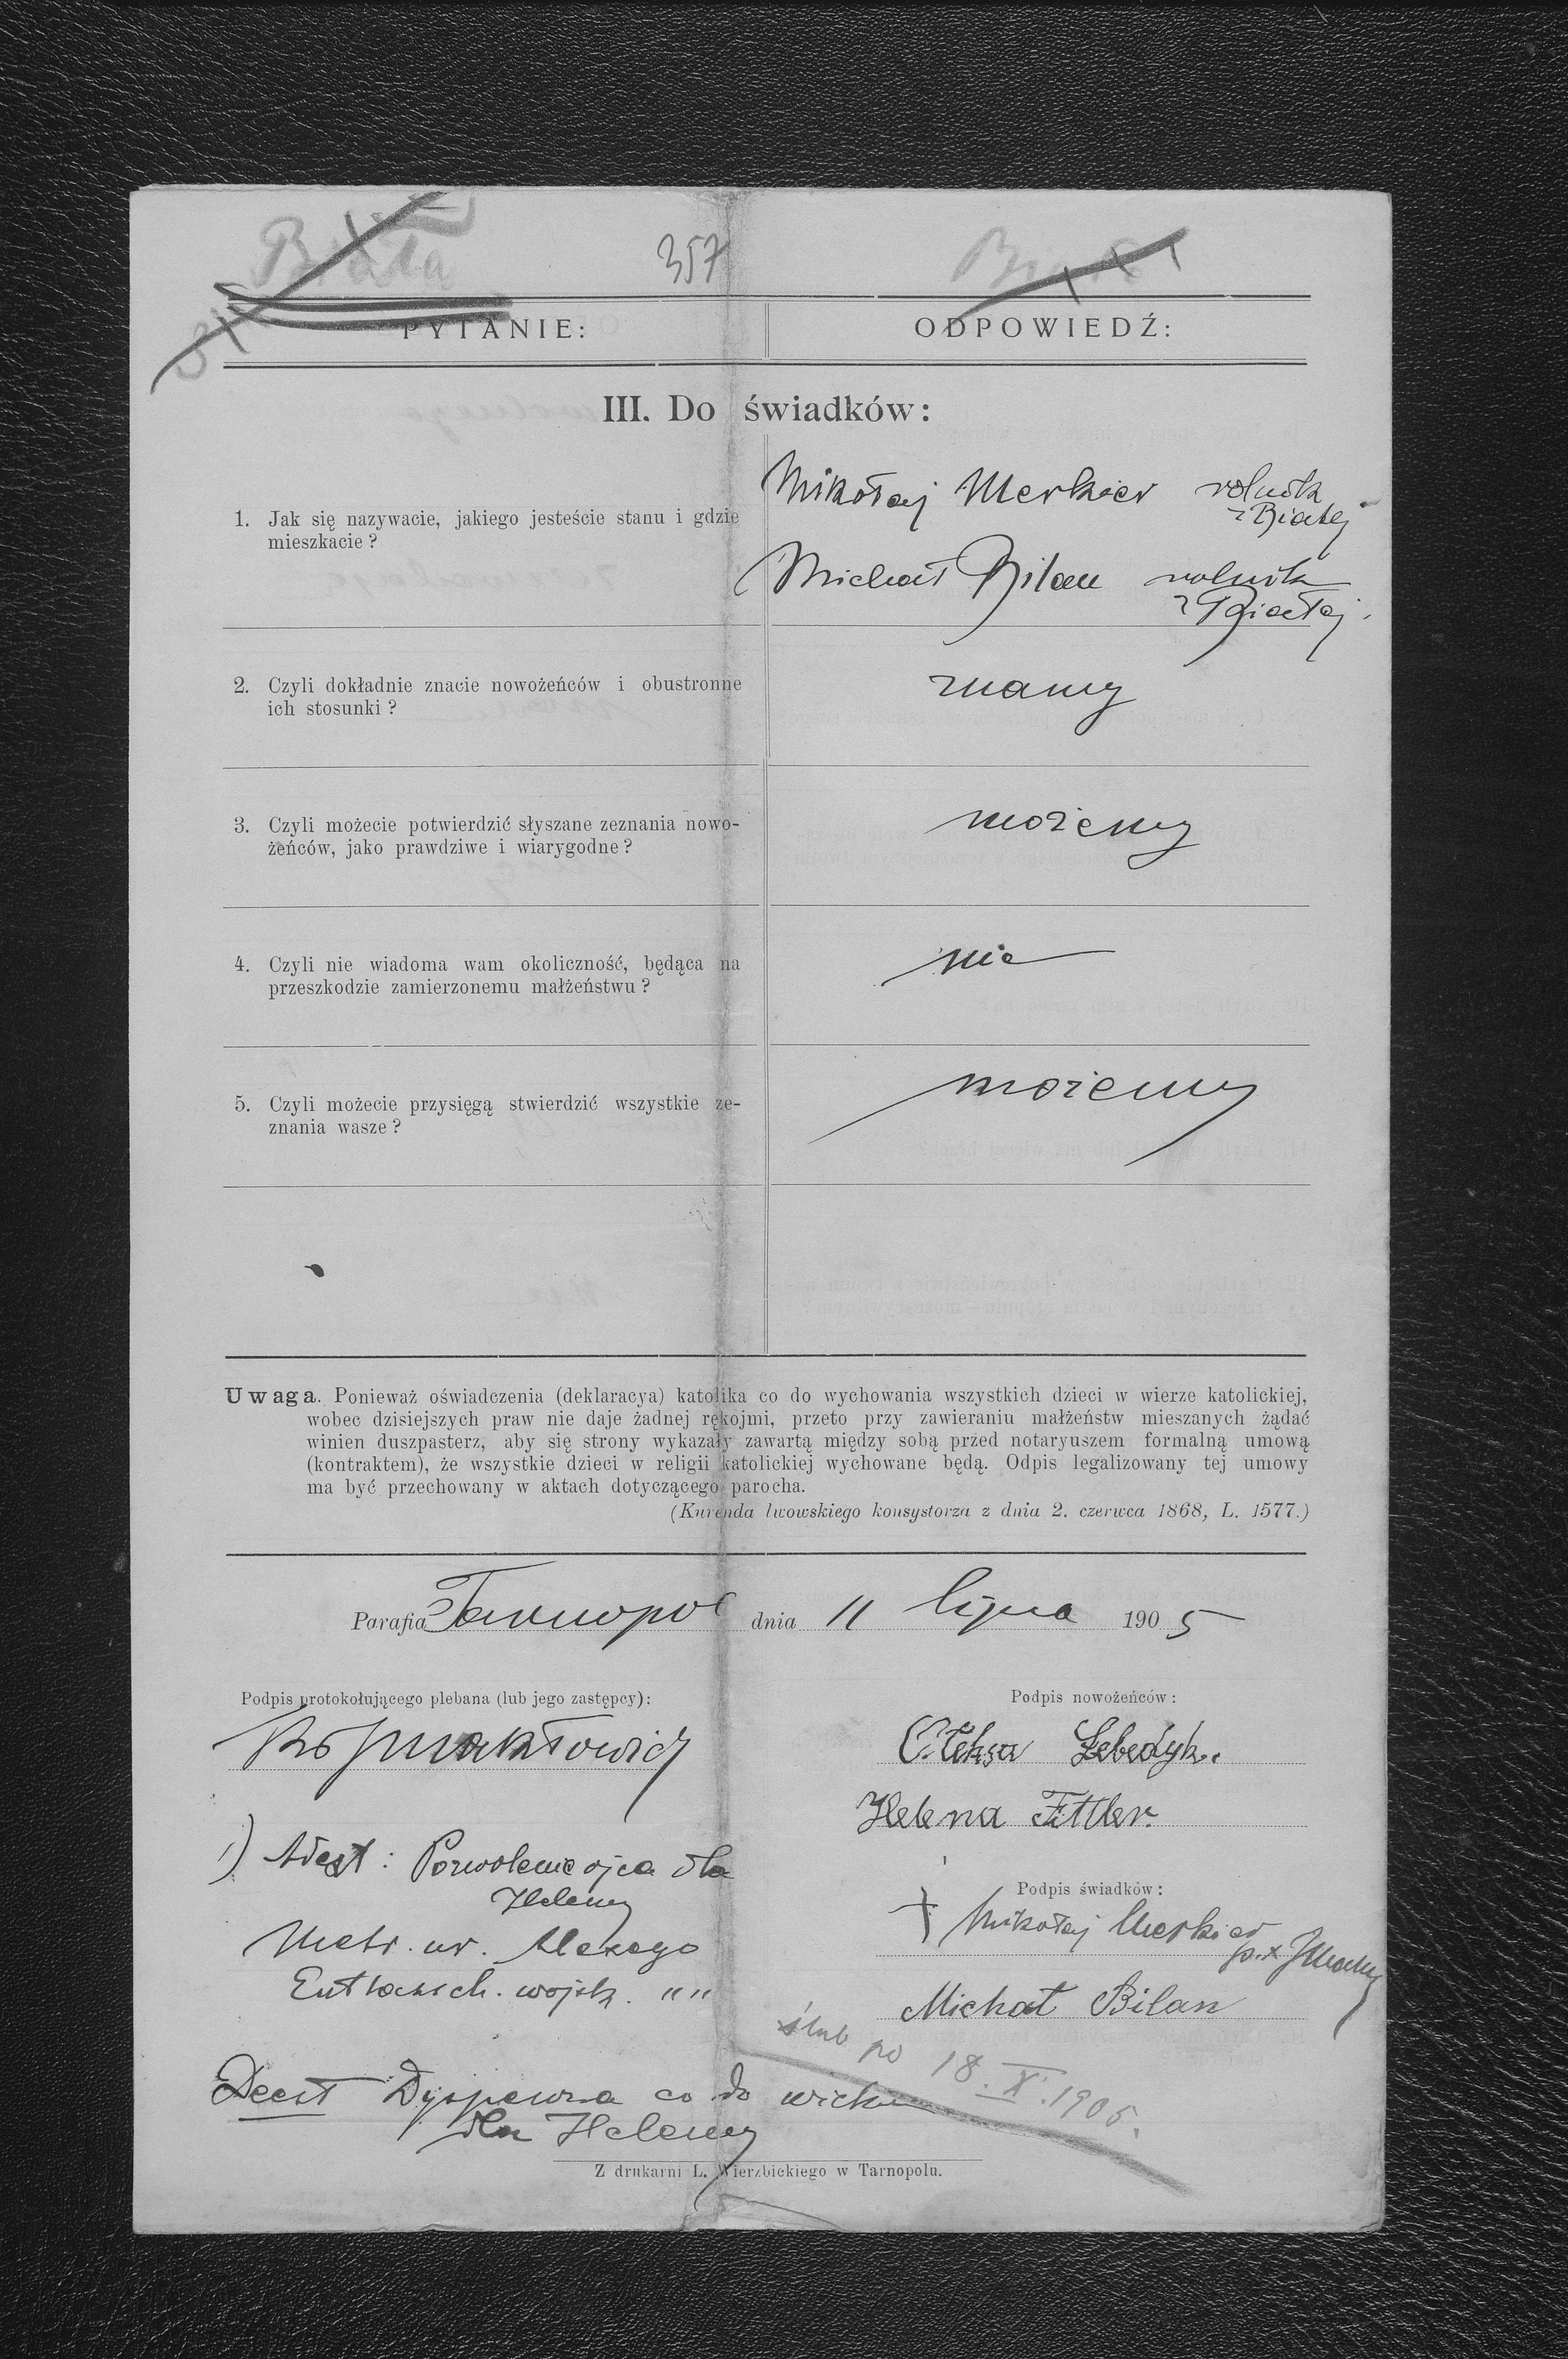 Biała
357
PYTANIE:
ODPOWIEDŹ:
III. Do świadków:
1. Jak się nazywacie, jakiego jesteście stanu i gdzie
mieszkacie?
Mikołaj Merkier rolnik
z Białej
Michał Bilan rolnik
z Białej.
2. Czyli dokładnie znacie nowożeńców i obustronne
ich stosunki?
znamy
3. Czyli możecie potwierdzić słyszane zeznania nowo-
żeńców, jako prawdziwe i wiarygodne?
możemy
4. Czyli nie wiadoma wam okoliczność, będąca na
przeszkodzie zamierzonemu małżeństwu?
nie
5. Czyli możecie przysięgą stwierdzić wszystkie ze-
znania wasze?
możemy
Uwaga. Ponieważ oświadczenia (deklaracya) katolika co do wychowania wszystkich dzieci w wierze katolickiej,
wobec dzisiejszych praw nie daje żadnej rękojmi, przeto przy zawieraniu małżeństw mieszanych żądać
winien duszpasterz, aby się strony wykazały zawartą między sobą przed notaryuszem formalną umową
(kontraktem), że wszystkie dzieci w religii katolickiej wychowane będą. Odpis legalizowany tej umowy
ma być przechowany w aktach dotyczącego parocha.
(Kurenda lwowskiego konsystorza z dnia 2. czerwca 1868, L. 1577.)
Parafia Tarnopol dnia 11 lipca 1905
Podpis protokołującego plebana (lub jego zastępcy):
Podpis nowożeńców:
Oleksa Lebedyk.
Helena Fittler.
1) Adest: Pozwolenie ojca dla
Heleny
Metr. ur. Alexego
wojsk. " "
Podpis świadków:
+ Mikołaj Merkier
Michał Bilan
ślub po 18. X. 1905.
Deest Dyspenza co do wieku
dla Heleny
Z drukarni L. Wierzbickiego w Tarnopolu.